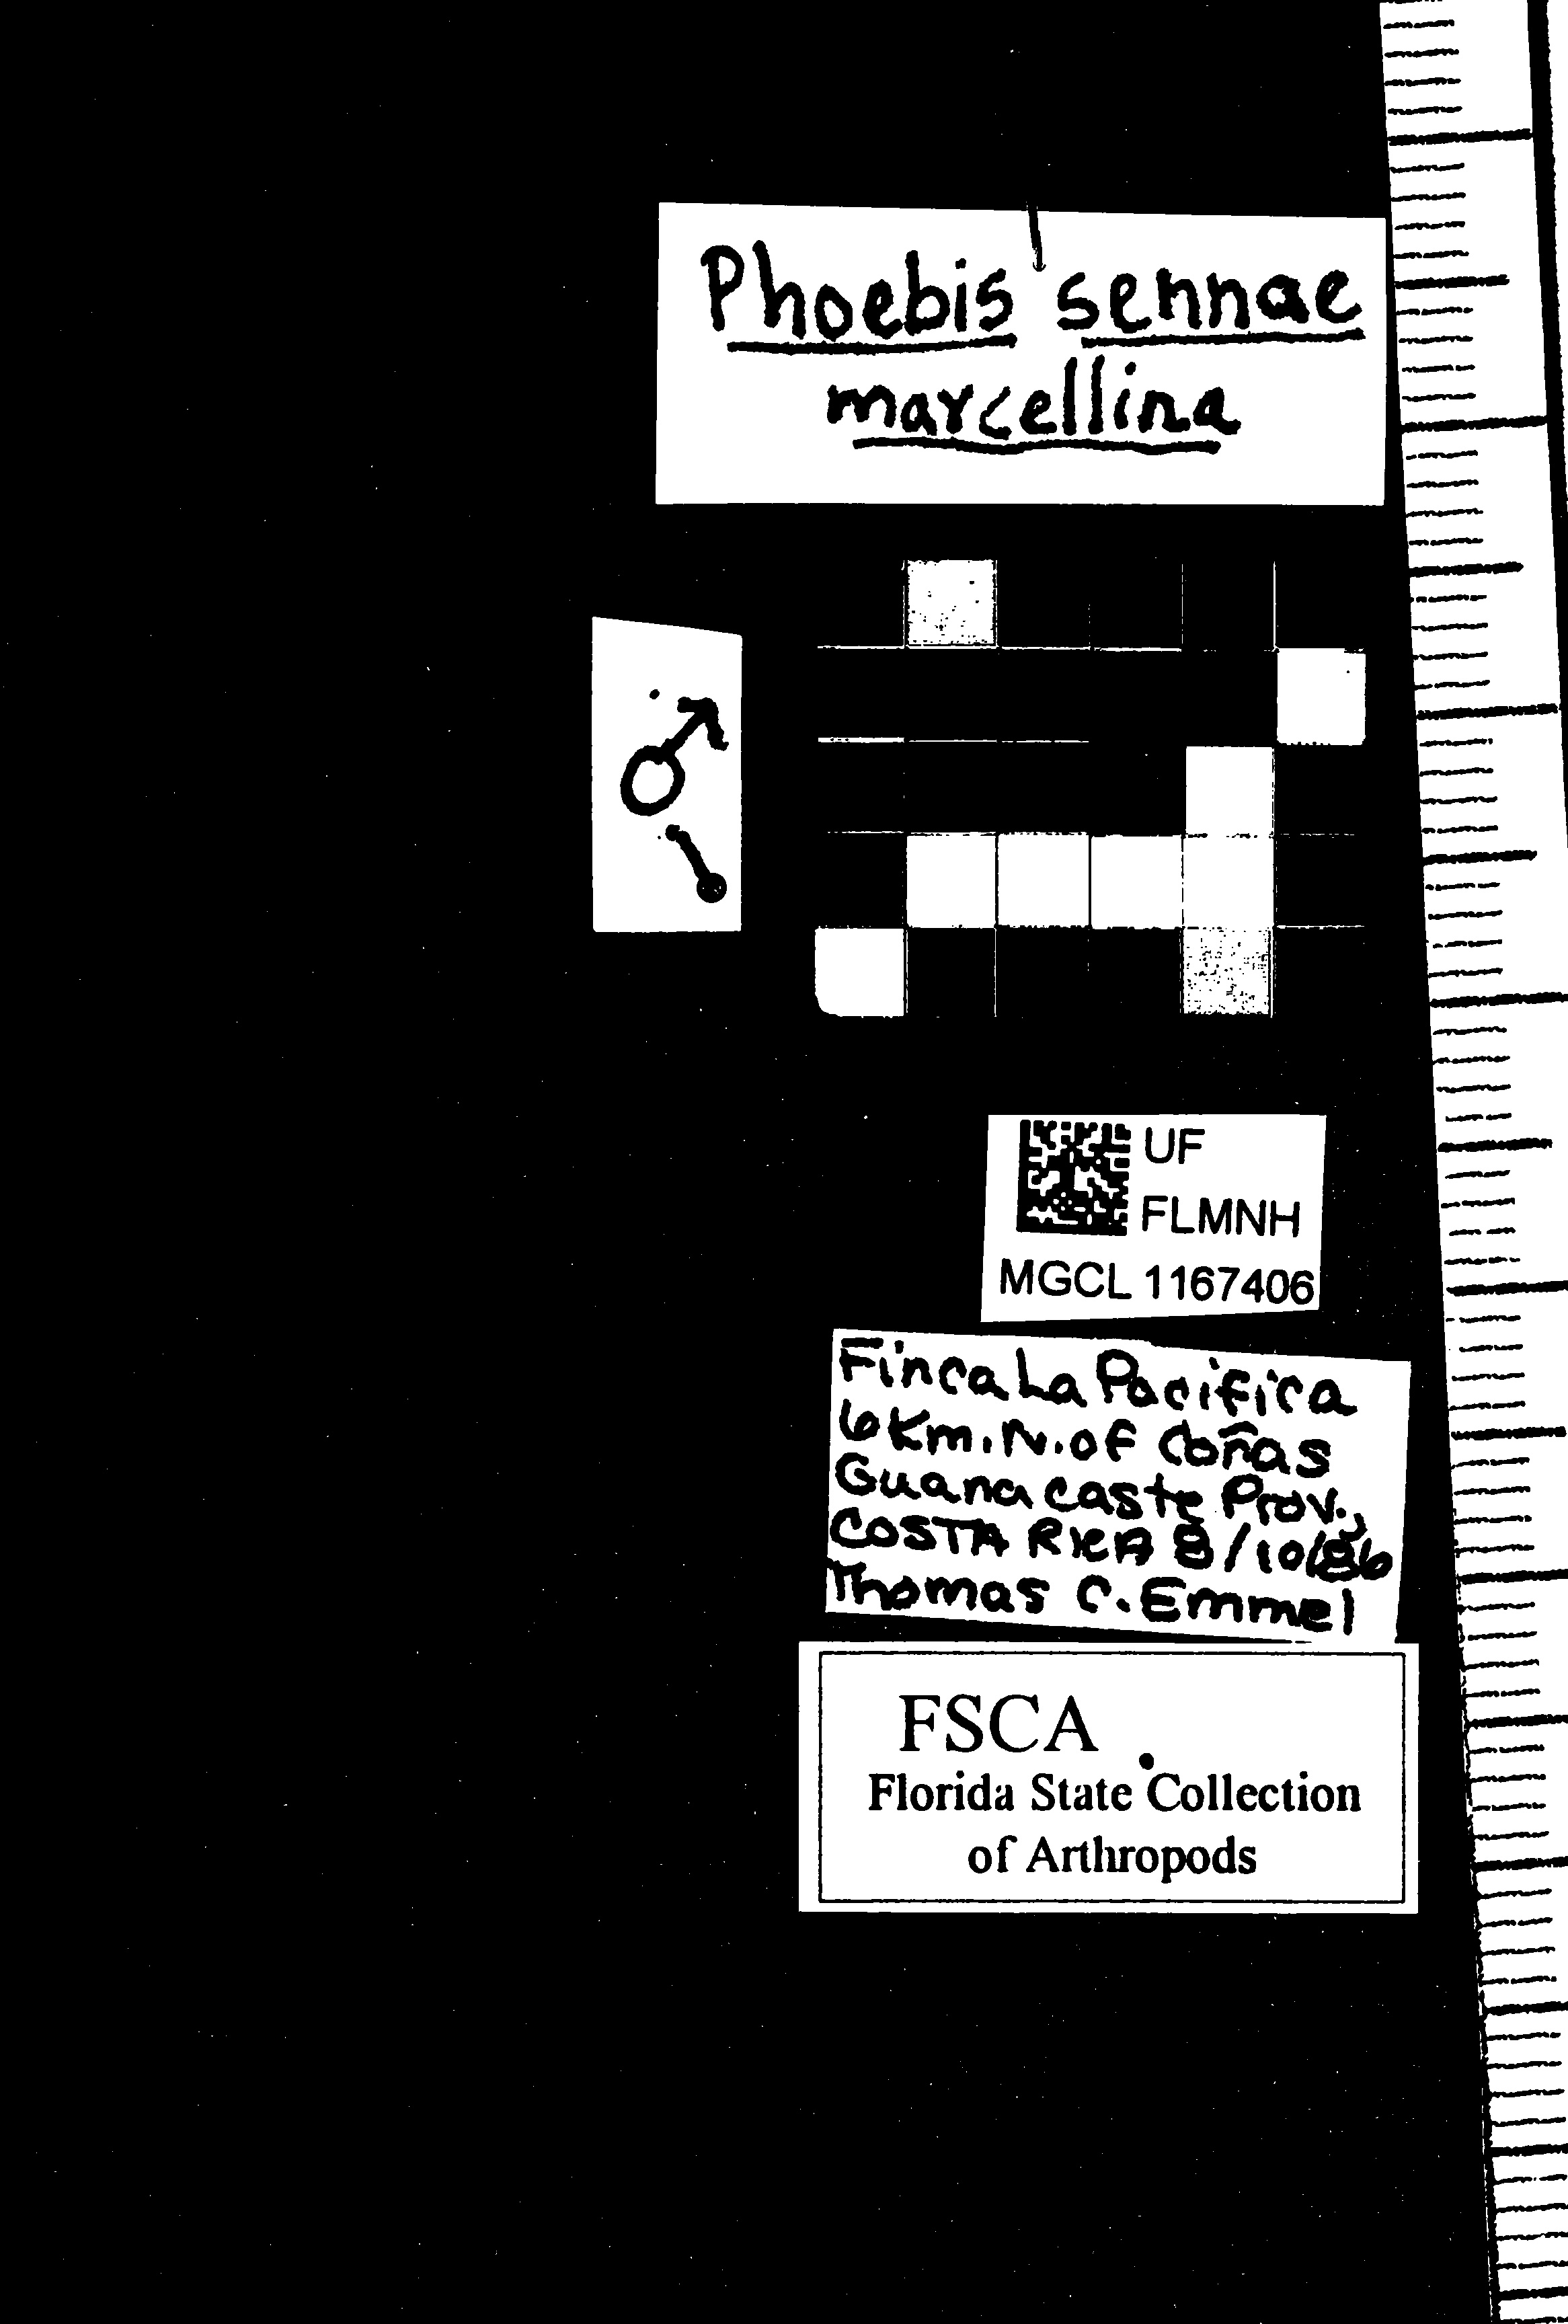 Phoebis sennae
marcellina
♂
UF
FLMNH
MGCL 1167406
Finca La Pacifica
6 Km. N. of Coñas
Guanacaste Prov.,
COSTA RICA 8/10/86
Thomas C. Emmel
FSCA
Florida State Collection
of Arthropods